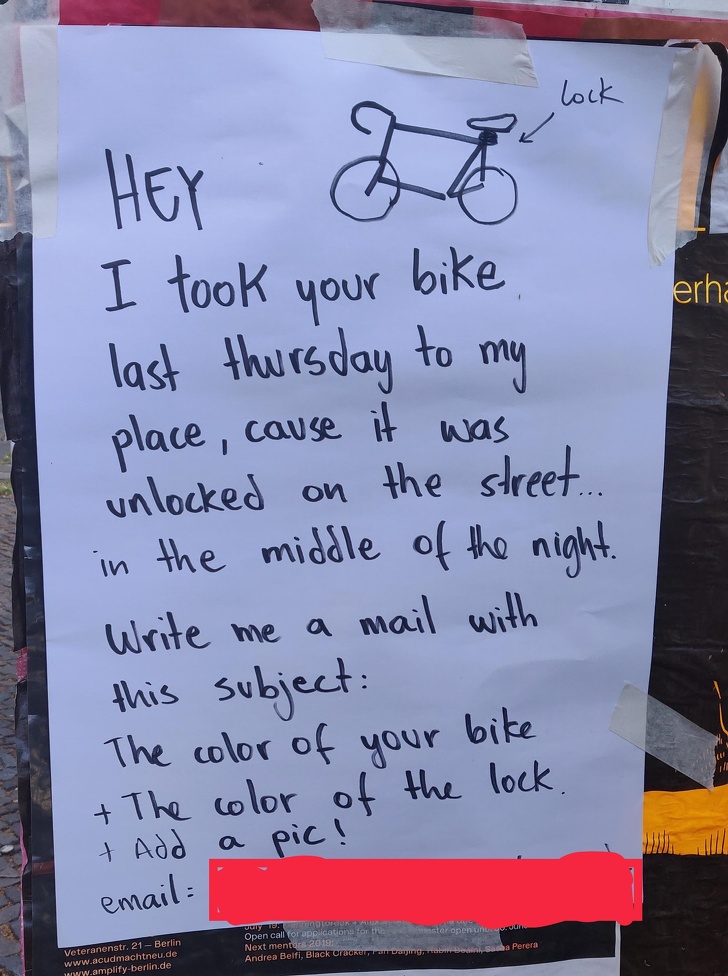 lock
HEY
I took your bike
last thursday to my
place, cause it was
unlocked on the street...
in the middle of the night.
Write me a mail with
this subject:
The color of your bike
+ The color of the lock.
+ Add a pic!
email:
erha
Veteranenstr. 21 – Berlin
www.acudmachtneu.de
www.amplify-berlin.de
Open call for applications for the
Next mentors 2019:
Andrea Belfi, Black Cracker, Pan Daijing,
Perera